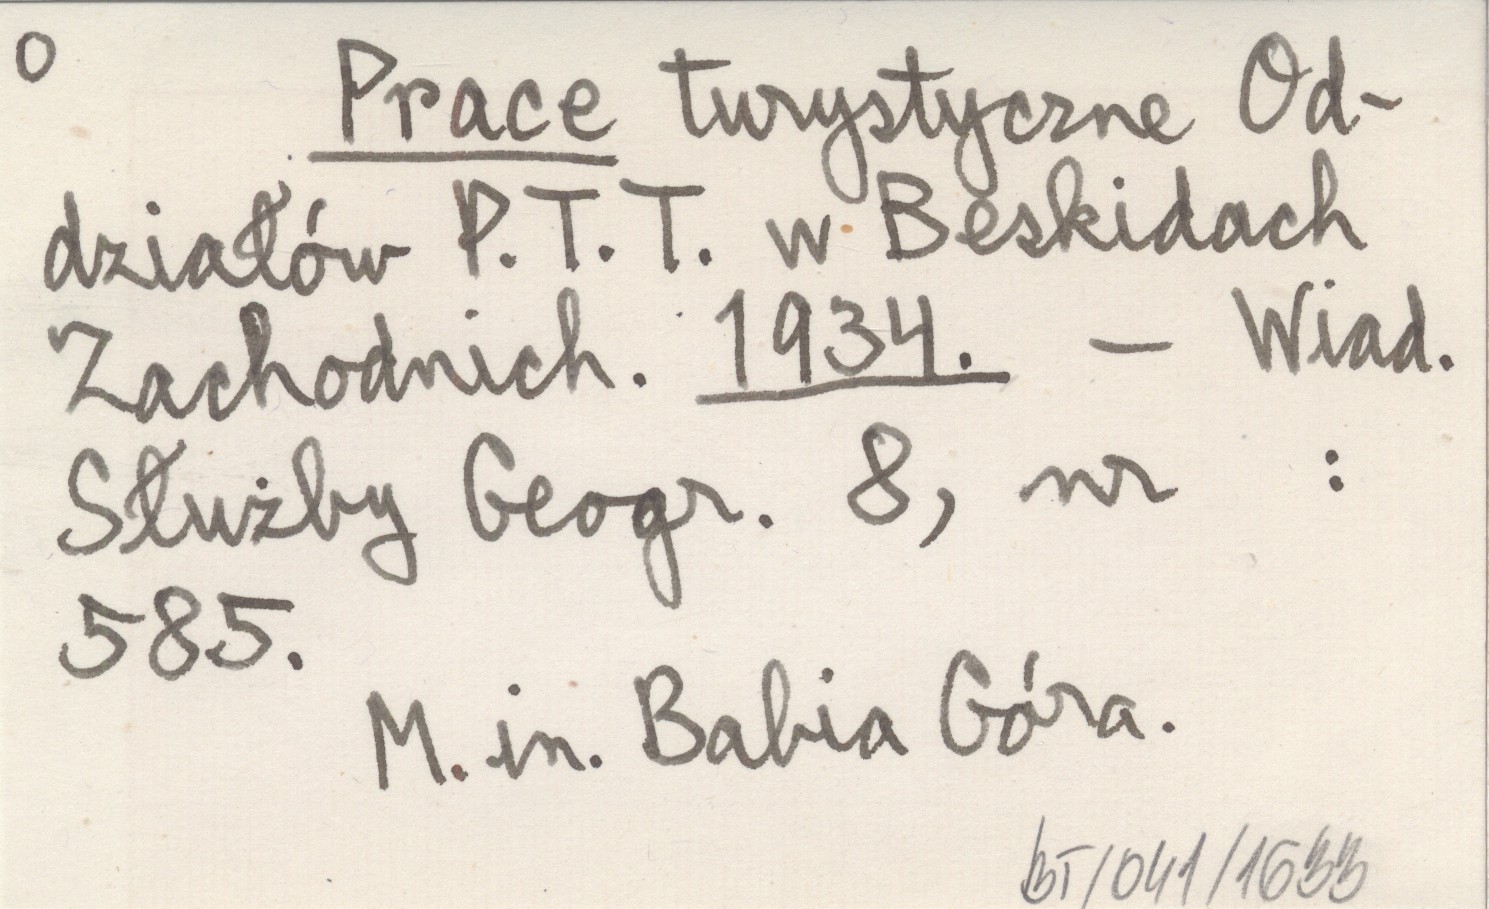 O
Prace turystyczne Od-
działów P.T.T. w Beskidach
Zachodnich. 1934. — Wiad.
Służby Geogr. 8, nr :
585.
M. in. Babia Góra.
BT/041/1633